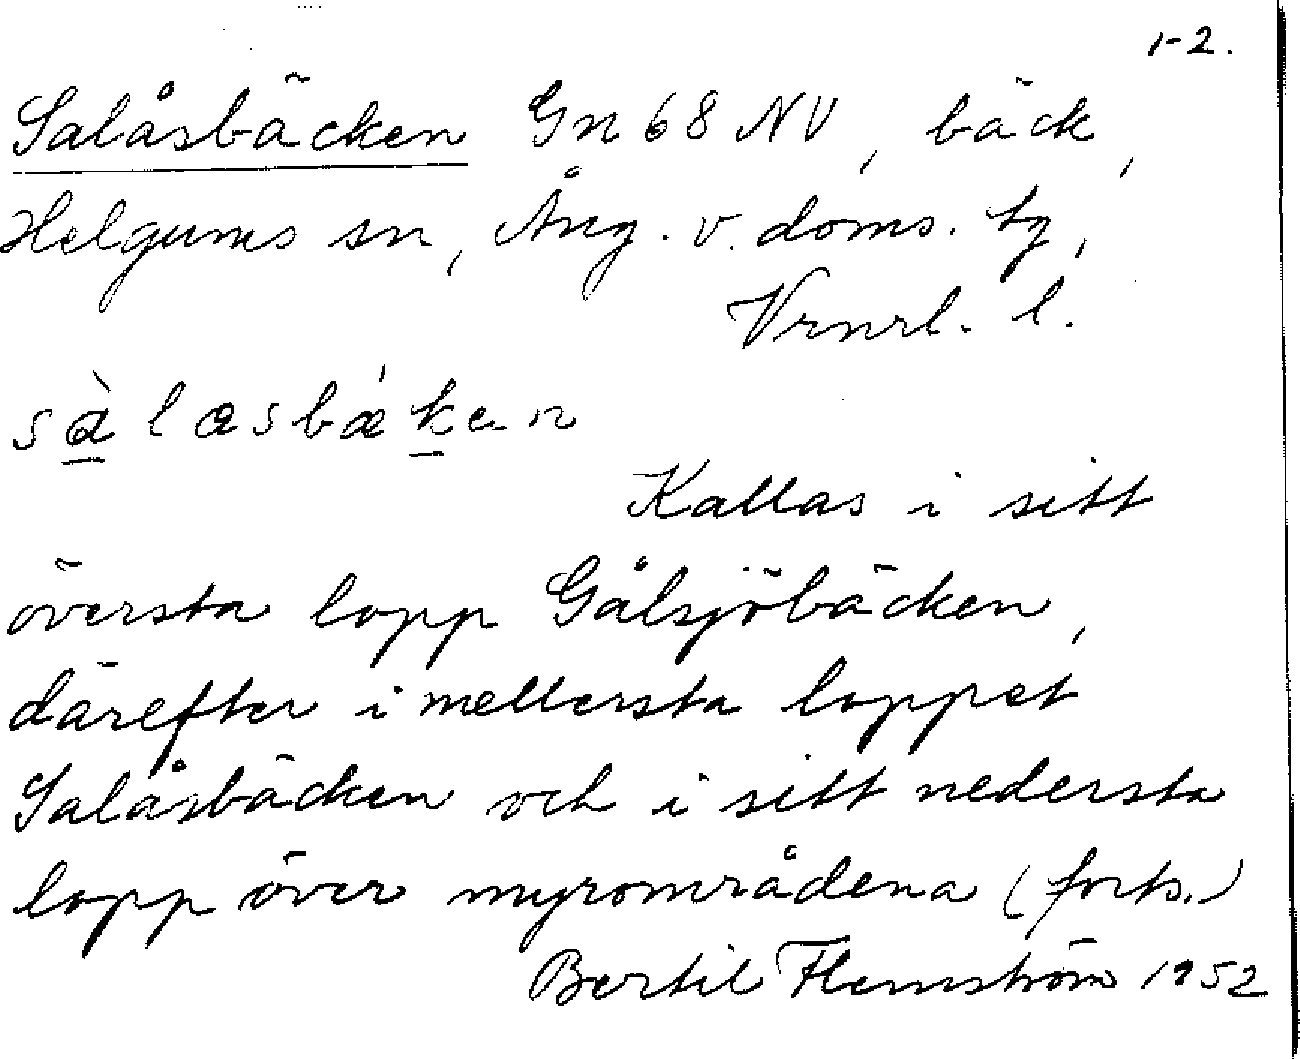 1-2.
Salåsbäcken Gn 68 NV, bäck,
Helgums sn, Ång. v. doms. tg,
Vrnrl. l.
sàlæsbǽken
Kallas i sitt
översta lopp Gålsjöbäcken,
därefter i mellersta loppet
Salåsbäcken och i sitt nedersta
lopp över myrområdena (forts.)
Bertil Flemström 1952